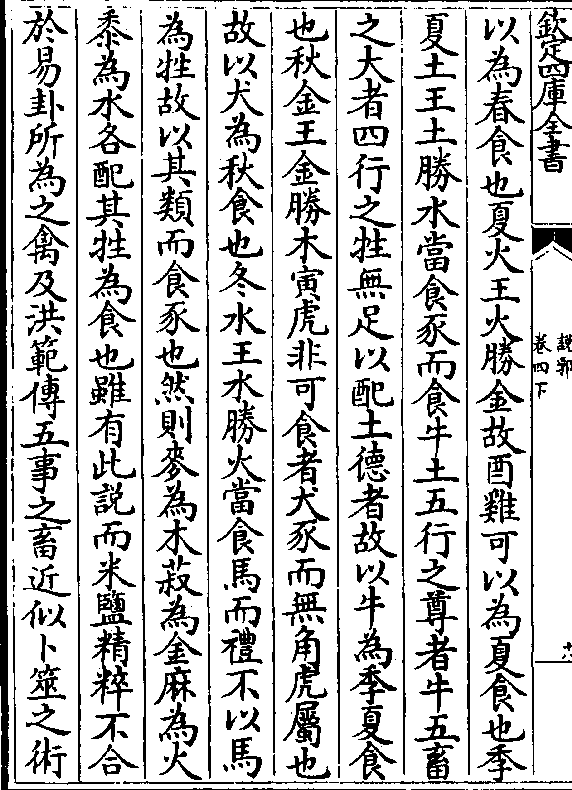 欽定四庫全書
說郛
卷四下
以為春食也夏火王火勝金故酉雞可以為夏食也季
夏土王土勝水當食豕而食牛土五行之尊者牛五畜
之大者四行之牲無足以配土德者故以牛為季夏食
也秋金王金勝木寅虎非可食者犬豕而無角虎屬也
故以犬為秋食也冬水王水勝火當食馬而禮不以馬
為牲故以其類而食豕也然則麥為木菽為金麻為火
黍為水各配其牲為食也雖有此説而米鹽精粹不合
於易卦所為之禽及洪範傳五事之畜近似卜筮之術